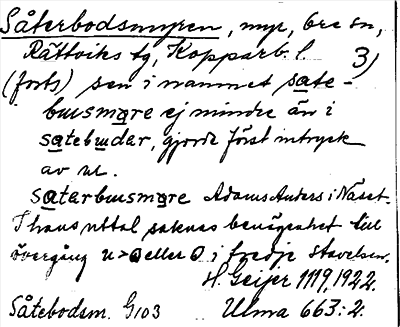 Såterbodsmyren, myr, Ore sn,
Rättviks tg, Kopparb. l. 3)
(forts) sen i namnet sate-
busmɑre ej mindre än i
satebuder, gjorde först intryck
av u.
saterbusmɑre Adams Anders i Näset.
I hans uttal saknas benägenhet till
övergång u > o eller o i tredje stavelsen.
H. Geijer 1119, 1922.
Såtebodsm. G103 Ulma 663:2.